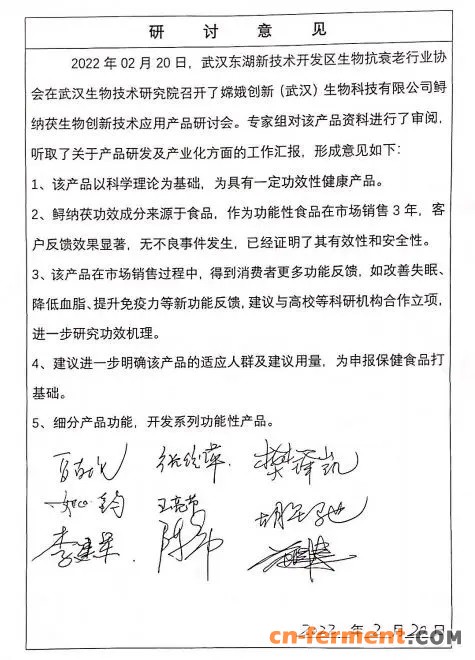 研 讨 意 见
2022 年 02 月 20 日，武汉东湖新技术开发区生物抗衰老行业协
会在武汉生物技术研究院召开了嫦娥创新（武汉）生物科技有限公司鲟
纳茯生物创新技术应用产品研讨会。专家组对该产品资料进行了审阅，
听取了关于产品研发及产业化方面的工作汇报，形成意见如下：
1、该产品以科学理论为基础，为具有一定功效性健康产品。
2、鲟纳茯功效成分来源于食品，作为功能性食品在市场销售 3 年，客
户反馈效果显著，无不良事件发生，已经证明了其有效性和安全性。
3、该产品在市场销售过程中，得到消费者更多功能反馈，如改善失眠、
降低血脂、提升免疫力等新功能反馈，建议与高校等科研机构合作立项，
进一步研究功效机理。
4、建议进一步明确该产品的适应人群及建议用量，为申报保健食品打
基础。
5、细分产品功能，开发系列功能性产品。
李建军
2022 年 2 月 20 日
cn-ferment.com